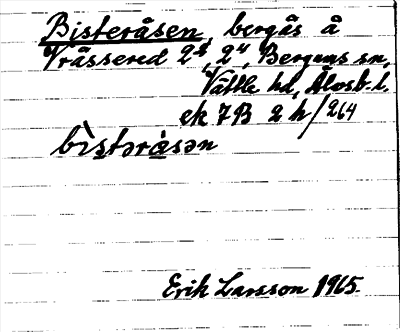 Bisteråsen, bergås å
Vrässered 2¹, 2⁴, Bergums sn,
Vättle hd, Älvsb. l.
ek 7B 2h/264
bìstəråsən
Erik Larsson 1965.